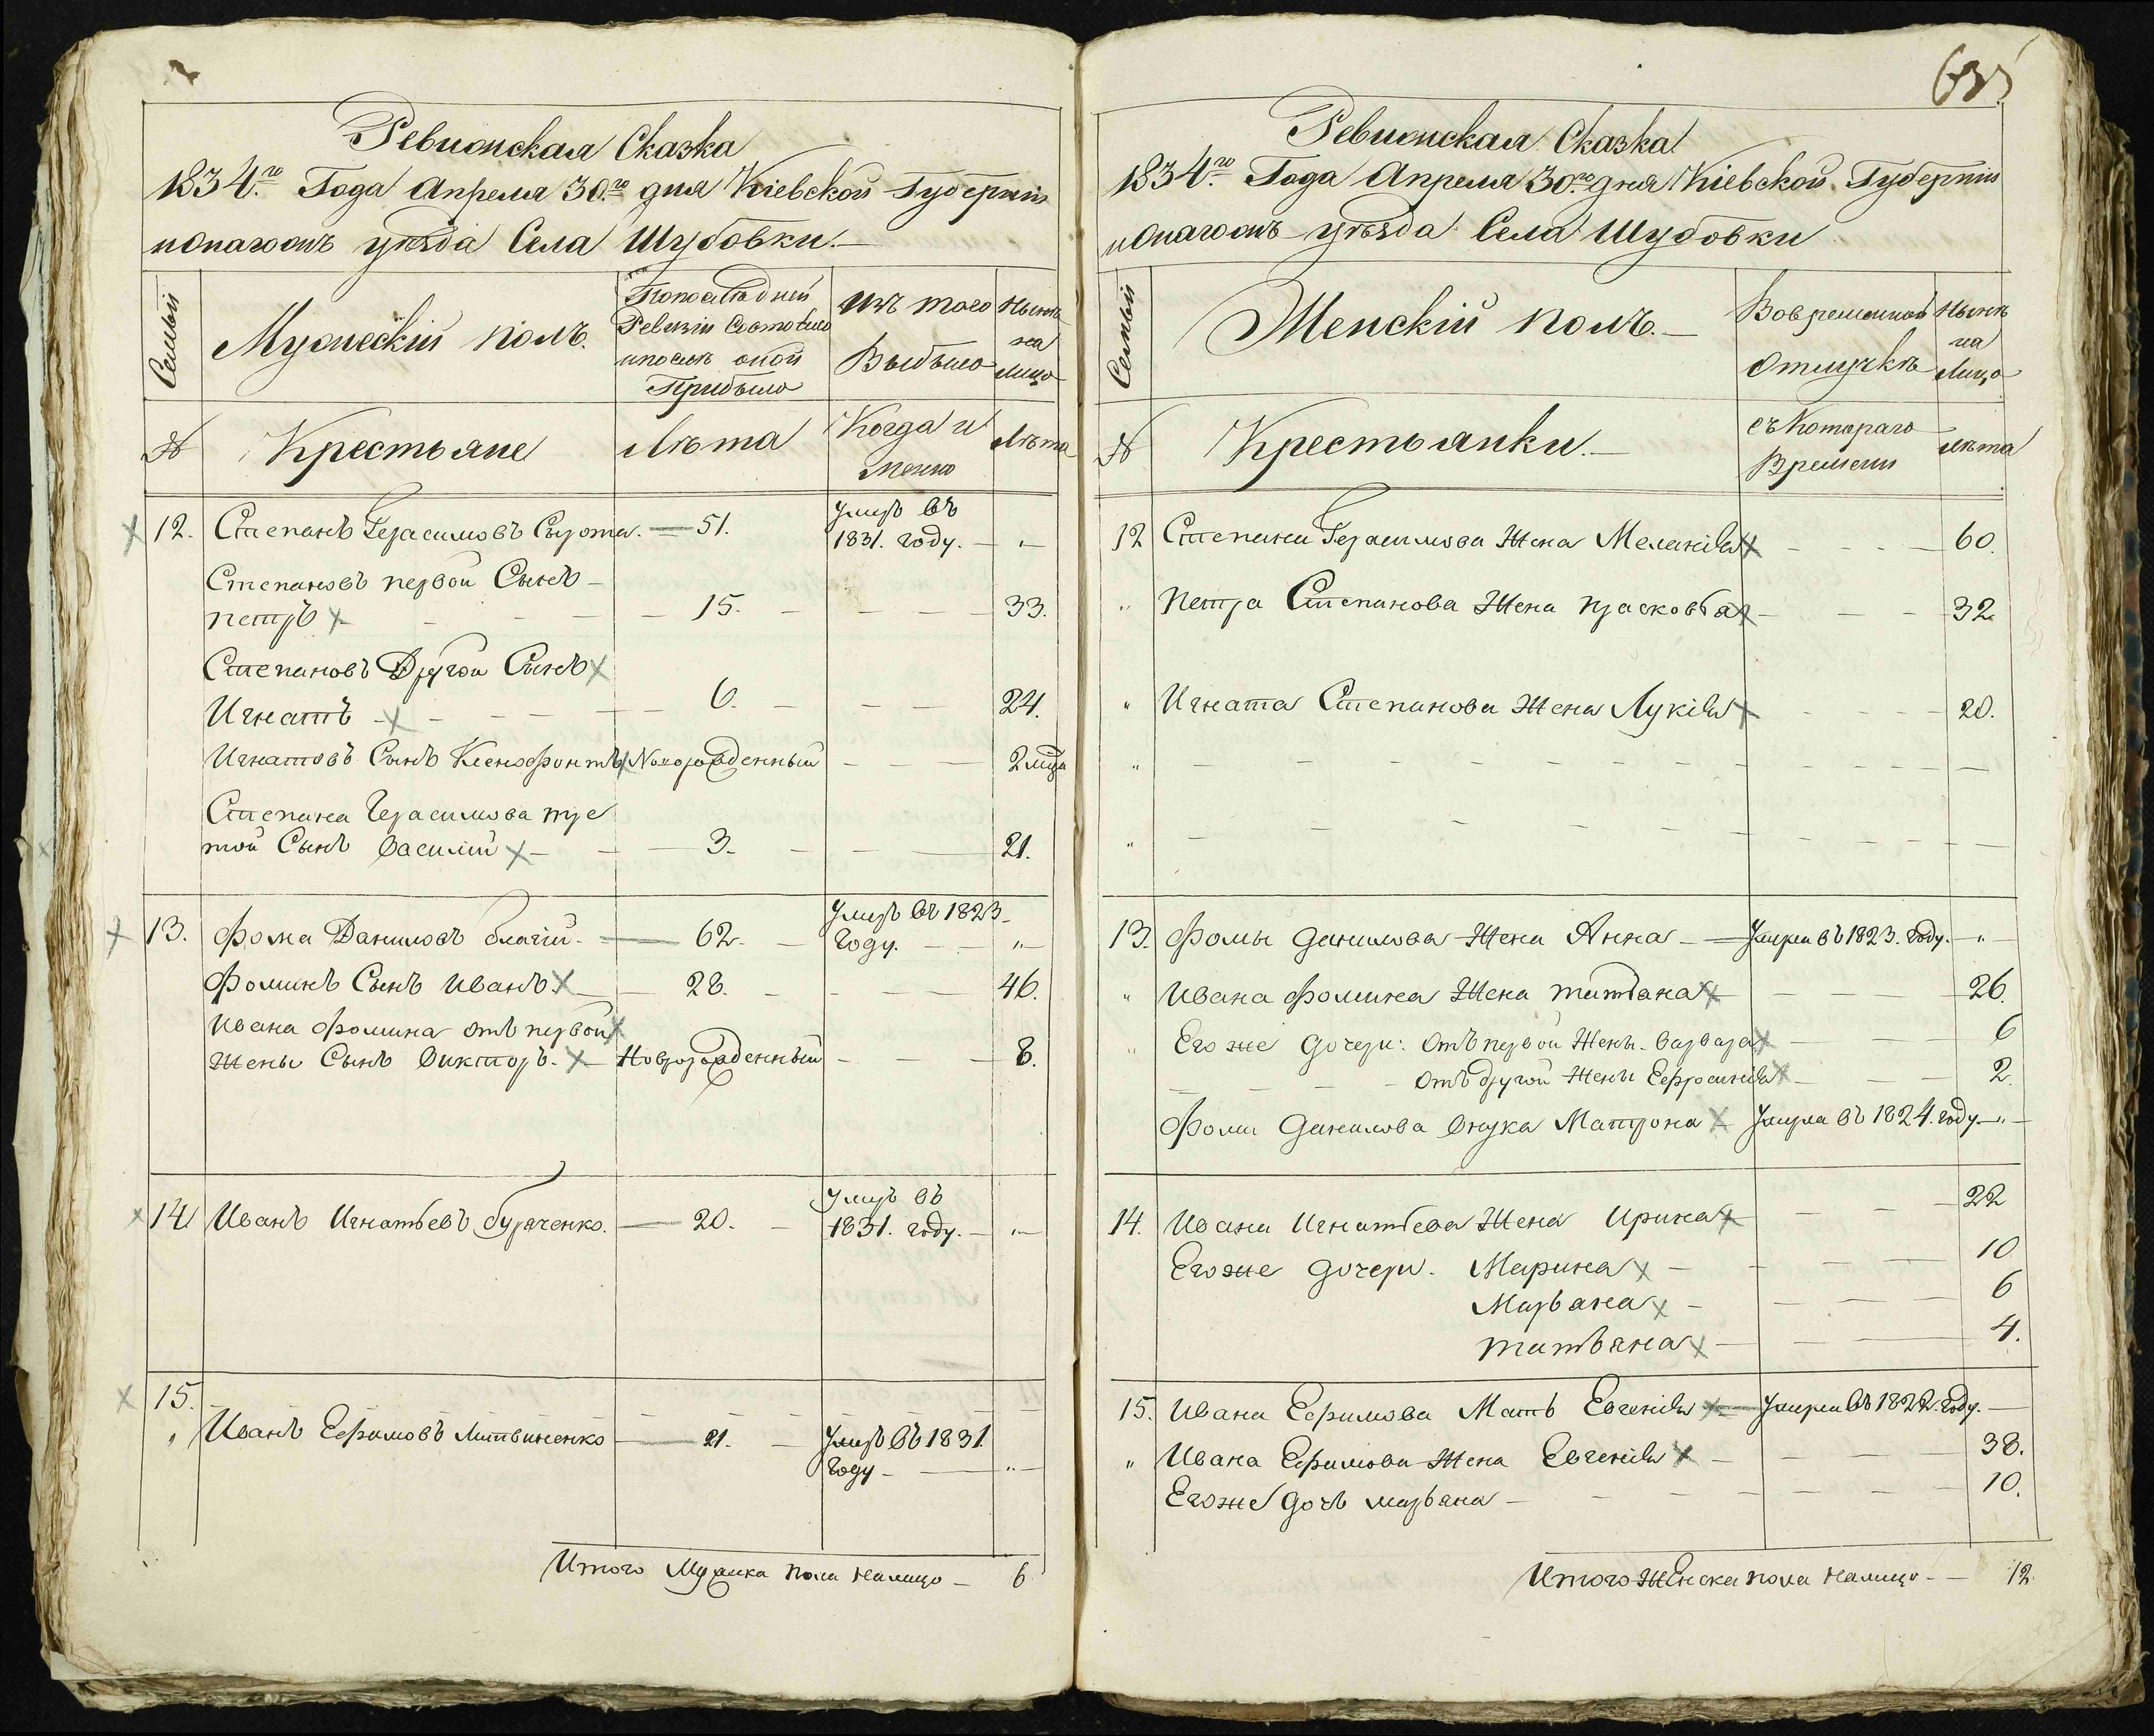 Ревизская Сказка
1834.го Года Апреля 30.го дня Кіевской Губерніи
уѣзда Села Шубовки.
Семьи
Мужескій полъ.
Попослѣдней
Ревизіи Состояло
ипослѣ оной
Прибыло
Изъ того
Выбыло
Нынѣ
на
Лицо
№
Крестьяне
Лѣта
Когда и
менно
Лѣта
12. Степанъ Герасимовъ Сырота. — 51.
Умеръ въ
1831. году. — „ —
Степановъ первой Сынъ —
петръ — 15. — 33.
Степановъ Другой Сынъ
Игнатъ — 6. — 24.
Игнатовъ Сынъ Ксенофонтъ Новорожденный — 2 мца
Степана Герасимова тре
той Сынъ Василій — 3. — 21.
13. Фома Даниловъ благій. — 62. —
Умеръ въ 1823 —
Году. — „ —
Фоминъ Сынъ Иванъ — 28. — 46.
Ивана Фомина отъ первой
жены Сынъ Викторъ. — Новорожденный — 8.
14 Иванъ Игнатьевъ бураченко. — 20. —
Умеръ въ
1831. году. — „ —
15.
„ Иванъ Ефимовъ Литвиненко — 21. — Умеръ въ 1831.
Году — „ —
Итого Мужска пола налицо — 6
635
Ревизская Сказка
1834.го Года Апреля 30.го дня Кіевской Губерніи
уѣзда Села Шубовки
Семьи
Женскій полъ. —
Вовременной
Отлучкѣ
Нынѣ
на
Лицо
№
Крестьянки. —
съ Котораго
Времени
лѣта
12 Степана Герасимова Жена Меланія — 60.
„ Петра Степанова Жена прасковья — 32.
„ Игната Степанова Жена Лукія — 20.
„
„
13. Фомы данилова Жена Анна — Умерла въ 1823. году. — „ —
„ Ивана Фомина Жена татьана — 26.
„ Его же дочери: Отъ первой Жены. Варвара — 6
— Отъ другой Жены Ефросинія — 2.
Фомы данилова Внука Матрона Умерла въ 1824. году. — „ —
14. Ивана Игнатьева Жена Ирина — 22
Егоже дочери. Марина — 10
Марьана — 6
татьяна — 4.
15. Ивана Ефимова Мать Евгенія — Умерла въ 1822. году. —
„ Ивана Ефимова Жена Евгенія — 38.
Егоже дочь марьана — 10.
Итого Женска пола налицо — 12.